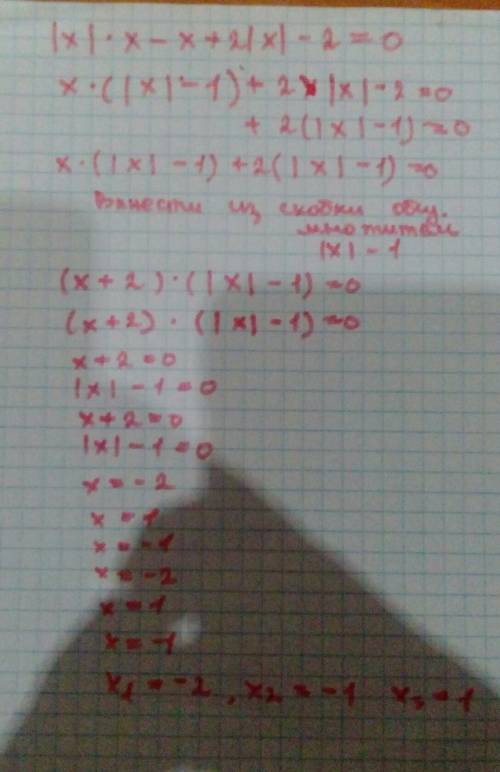 |x| · x − x + 2|x| − 2 = 0
x · (|x| − 1) + 2 |x| − 2 = 0
+ 2(|x| − 1) = 0
x · (|x| − 1) + 2(|x| − 1) = 0
Вынести из скобки общ.
множители
|x| − 1
(x + 2) · (|x| − 1) = 0
(x+2) · (|x| − 1) = 0
x + 2 = 0
|x| − 1 = 0
x + 2 = 0
|x| − 1 = 0
x = −2
x = 1
x = −1
x = −2
x = 1
x = −1
x₁ = −2, x₂ = −1 x₃ = 1